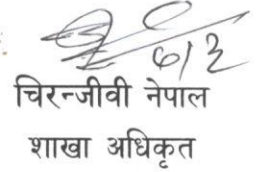 ६/३
चिरन्जीवी नेपाल
शाखा अधिकृत